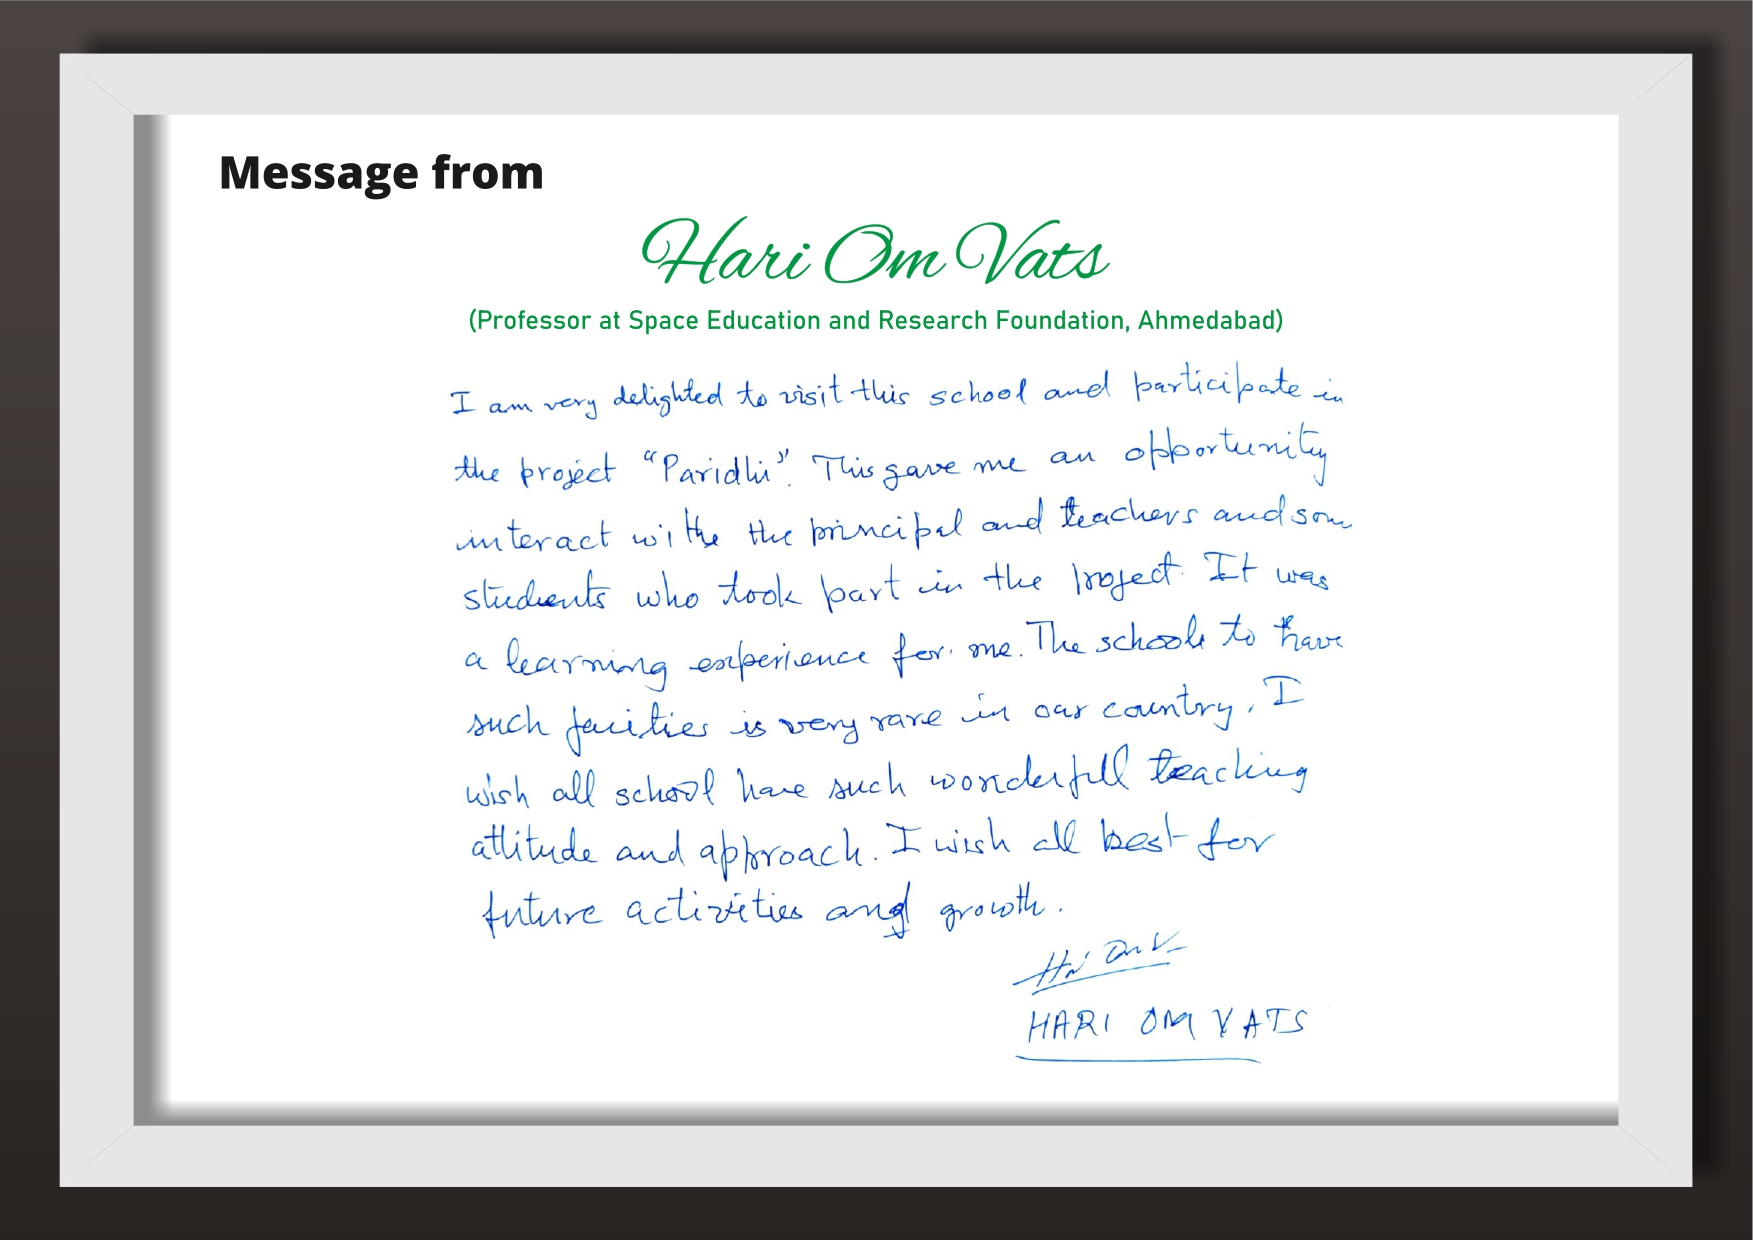 Message from
Hari Om Vats
(Professor at Space Education and Research Foundation, Ahmedabad)
I am very delighted to visit this school and participate in
the project "Paridhi". This gave me an opportunity
interact withe the principal and teachers and som
students who took part in the project. It was
a learning experience for me. The schools to have
such facities is very rare in our country. I
wish all school have such wonderfull teaching
attitude and approach. I wish all best for
future activities and growth.
HARI OM VATS